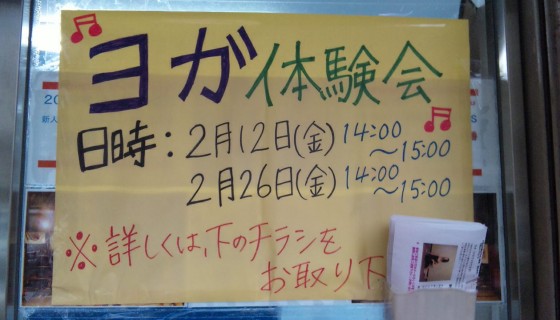 ヨガ体験会
日時：2月12日(金) 14:00～15:00
2月26日(金) 14:00～15:00
※詳しくは、下のチラシを
お取り下